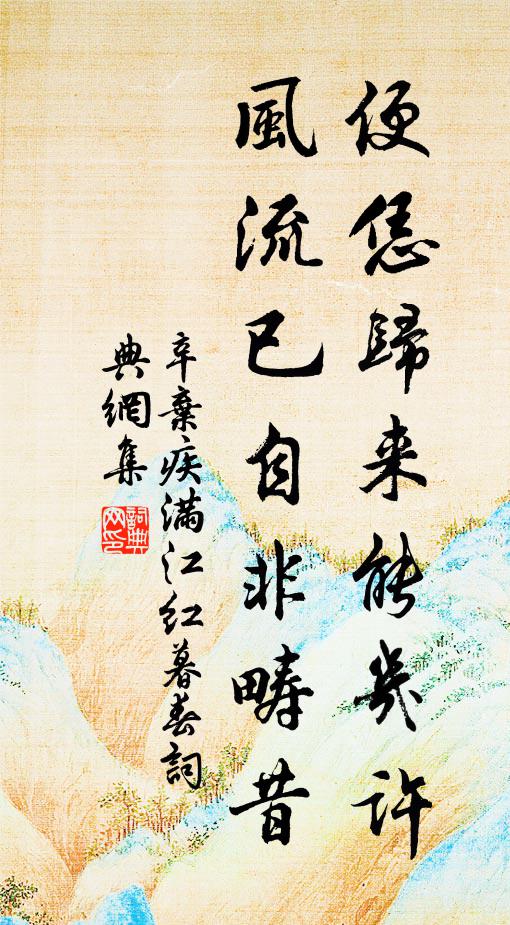 便恁歸来能幾許
風流已自非疇昔
辛棄疾满江红暮春詞
典網集
詞典
网印